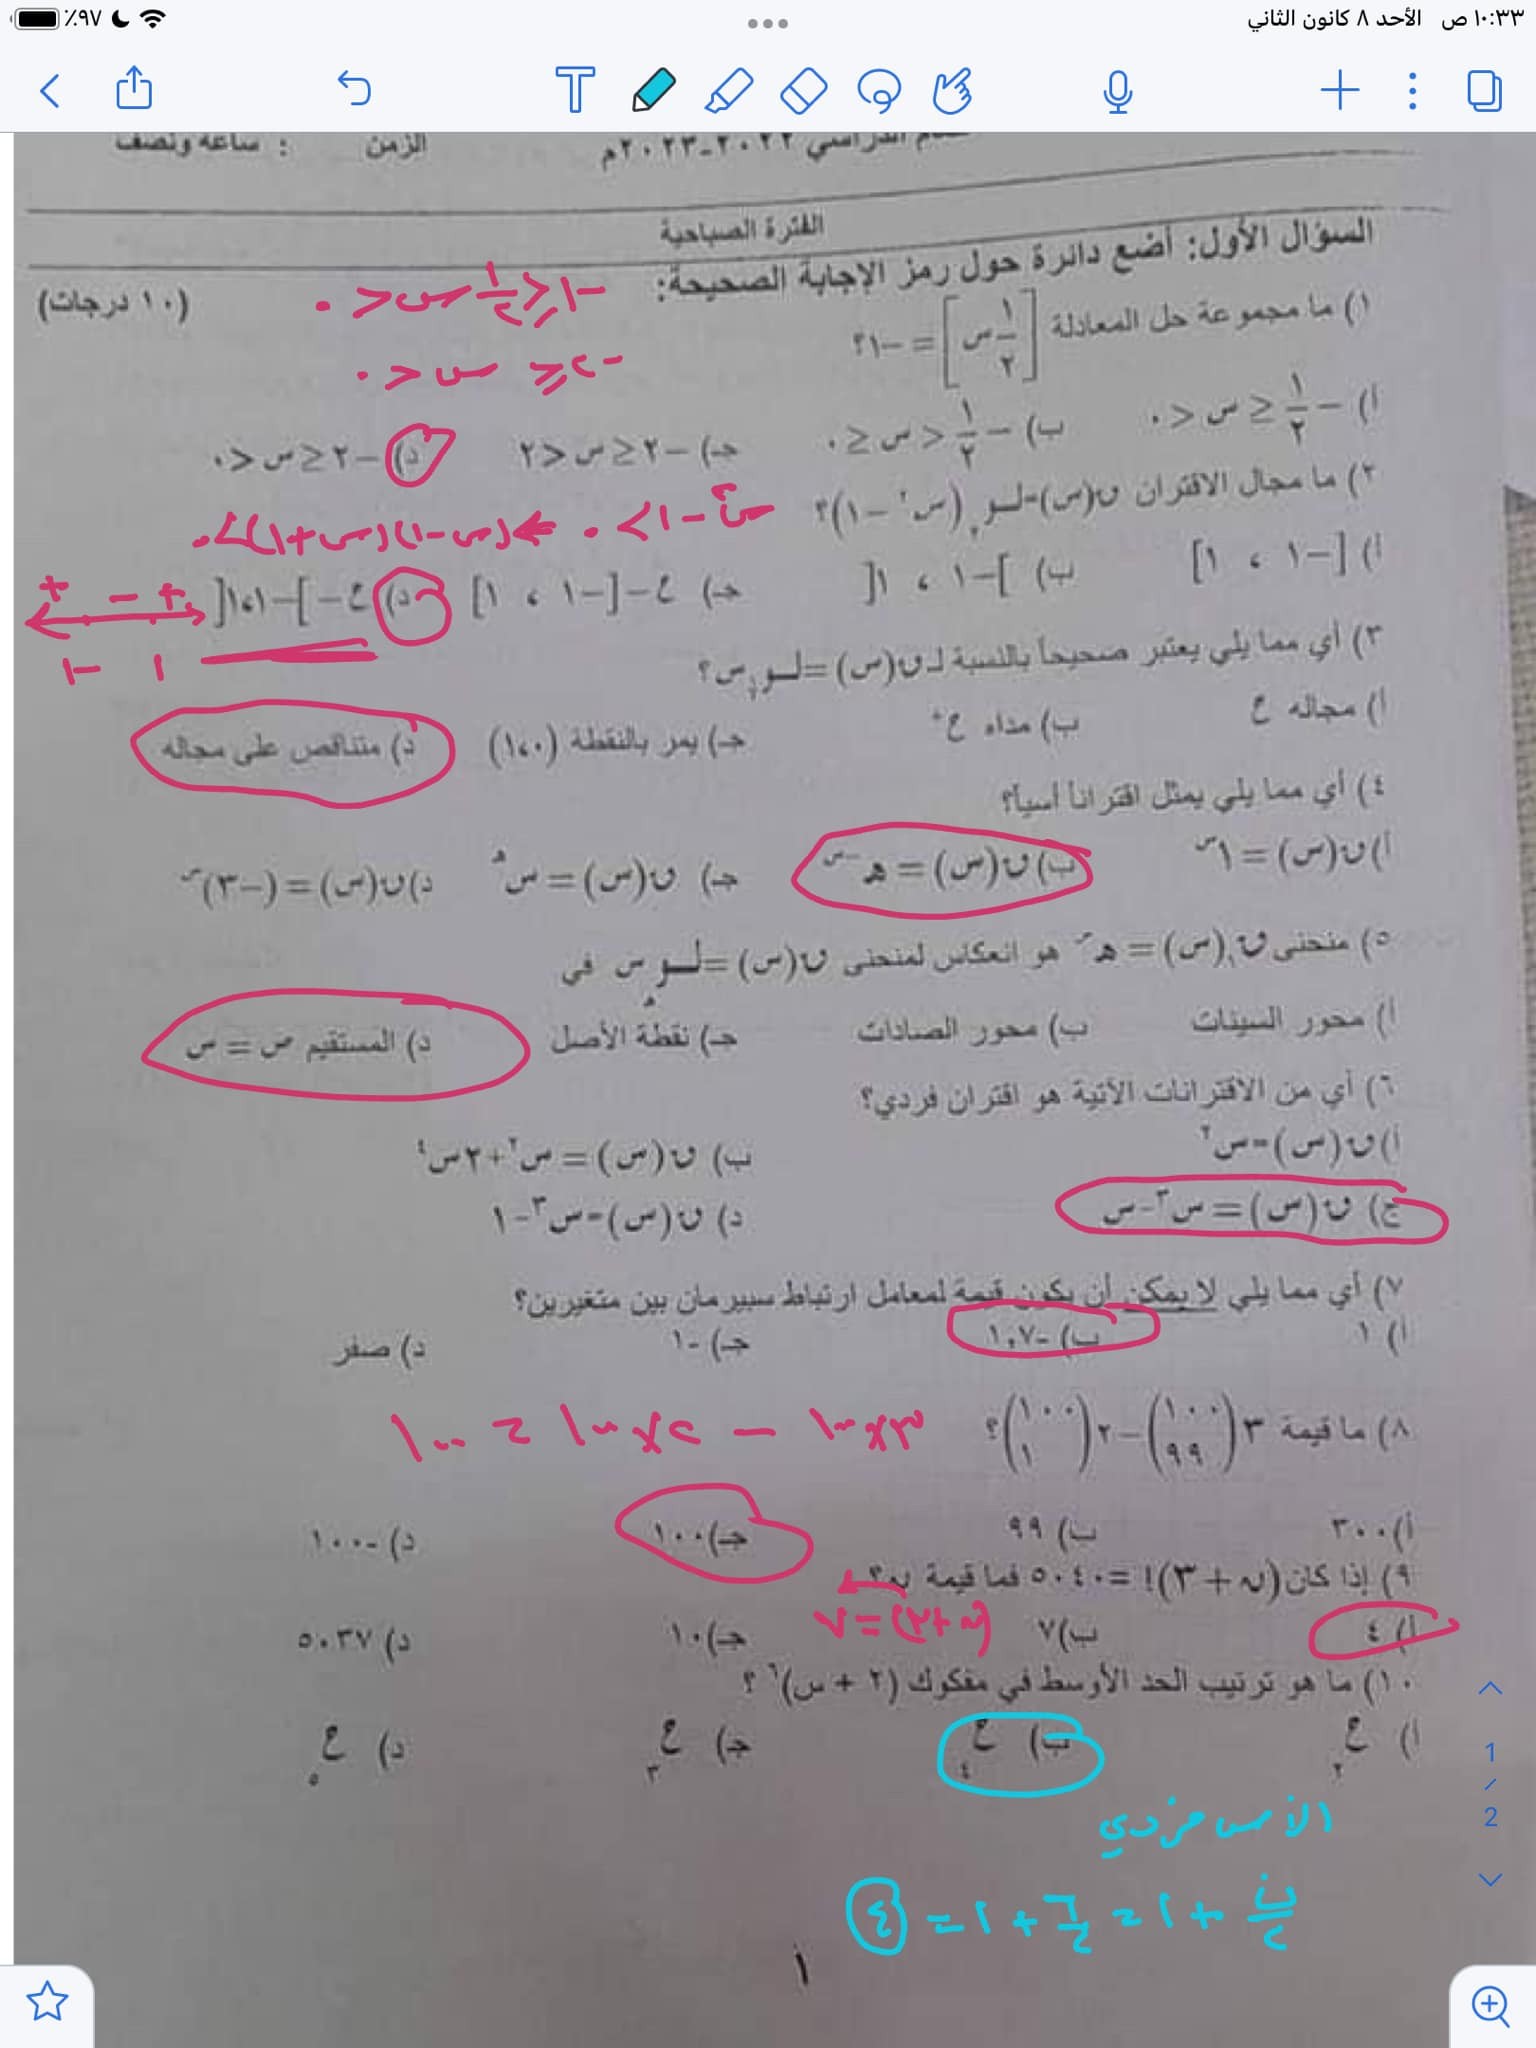 ١٠:٣٣ ص الأحد ٨ كانون الثاني
٪٩٧
الدراسي ٢٠٢٢-٢٠٢٣م
الزمن : ساعة ونصف
الفترة الصباحية
السؤال الأول: أضع دائرة حول رمز الإجابة الصحيحة:
(١٠ درجات)
-١ ≤ ١/٢ س < ٠
١) ما مجموعة حل المعادلة [١/٢ س] = -١؟
-٢ ≤ س < ٠
أ) -١/٢ ≤ س < ٠ ب) -١/٢ < س ≤ ٠ جـ) -٢ ≤ س < ٢ د) -٢ ≤ س < ٠
٢) ما مجال الاقتران ق(س)=لـو (س² -١)؟
س² - ١ > ٠ ← (س-١)(س+١) > ٠
أ) [-١ ، ١] ب) ]-١ ، ١[ جـ) ح-[-١ ، ١] د) ح-]-١،١[
+ - +
-١ ١
٣) أي مما يلي يعتبر صحيحاً بالنسبة لـ ق(س) =لـو س؟
أ) مجاله ح ب) مداه ح⁺ جـ) يمر بالنقطة (١،٠) د) متناقص على مجاله
٤) أي مما يلي يمثل اقتراناً أسياً؟
أ) ق(س) = ١^س ب) ق(س) = هـ^-س جـ) ق(س) = س^هـ د) ق(س) = (-٣)^س
٥) منحنى ق₁(س) = هـ^س هو انعكاس لمنحنى ق(س) =لـو_هـ س في
أ) محور السينات ب) محور الصادات جـ) نقطة الأصل د) المستقيم ص = س
٦) أي من الاقترانات الآتية هو اقتران فردي؟
أ) ق(س)=س² ب) ق(س) = س²+٢س⁴
ج) ق(س) = س³-س د) ق(س)=س³-١
٧) أي مما يلي لا يمكن أن يكون قيمة لمعامل ارتباط سبيرمان بين متغيرين؟
أ) ١ ب) -١,٠٧ جـ) -١ د) صفر
٨) ما قيمة ٣(١٠٠ ٩٩)-٢(١٠٠ ١)؟
٣×١٠٠ - ٢×١٠٠ = ١٠٠
أ) ٣٠٠ ب) ٩٩ جـ) ١٠٠ د) -١٠٠
٩) إذا كان (ن + ٣)! = ٥٠٤٠ فما قيمة ن؟
(ن+٣) = ٧
أ) ٤ ب) ٧ جـ) ١٠ د) ٥٠٣٧
١٠) ما هو ترتيب الحد الأوسط في مفكوك (٢ + س)⁶ ؟
أ) ح₢ ب) ح₄ جـ) ح₃ د) ح₅
ن/٢ + ١ = ٦/٢ + ١ = ٤
١
1
/
2